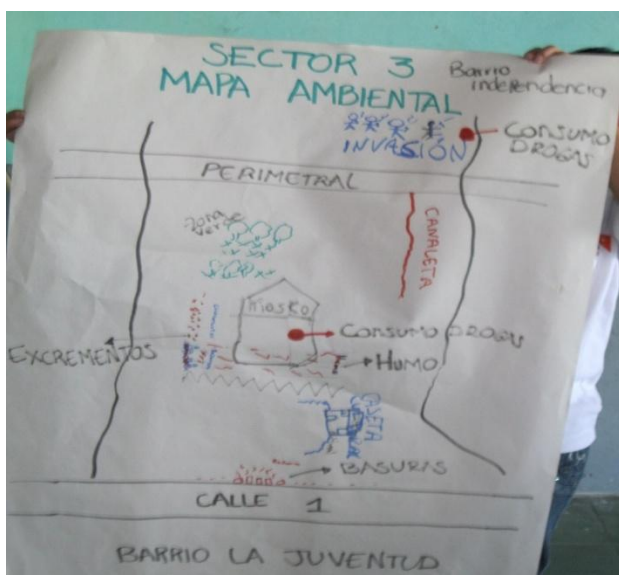 SECTOR 3
MAPA AMBIENTAL
Barrio
independencia
CONSUMO
DROGAS
INVASIÓN
PERIMETRAL
Zona
verde
CANALETA
Kiosko
CONSUMO DROGAS
EXCREMENTOS
HUMO
CASETA
BASURAS
CALLE 1
BARRIO LA JUVENTUD